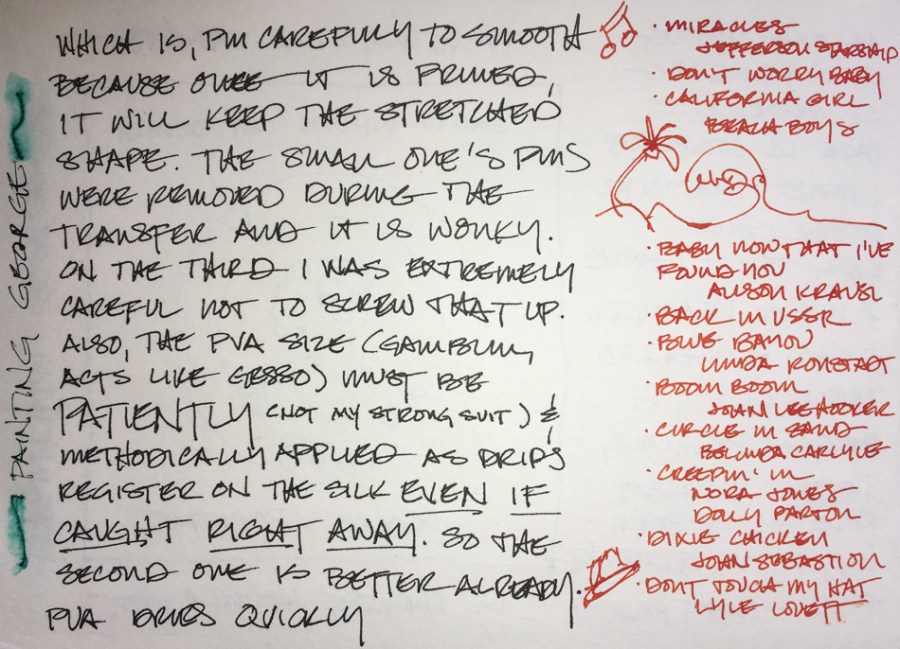 PAINTING GEORGE
WHICH IS, PIN CAREFULLY TO SMOOTH
BECAUSE ONCE IT IS PRIMED,
IT WILL KEEP THE STRETCHED
SHAPE. THE SMALL ONE'S PINS
WERE REMOVED DURING THE
TRANSFER AND IT IS WONKY.
ON THE THIRD I WAS EXTREMELY
CAREFUL NOT TO SCREW THAT UP.
ALSO, THE PVA SIZE (GAMBLIN,
ACTS LIKE GESSO) MUST BE
PATIENTLY (NOT MY STRONG SUIT) &
METHODICALLY APPLIED AS DRIPS
REGISTER ON THE SILK EVEN IF
CAUGHT RIGHT AWAY. SO THE
SECOND ONE IS BETTER ALREADY.
PVA DRIES QUICKLY
· MIRACLES
JEFFERSON STARSHIP
· DON'T WORRY BABY
· CALIFORNIA GIRL
BEACH BOYS
· BABY NOW THAT I'VE
FOUND YOU
ALISON KRAUSE
· BACK IN USSR
· BLUE BAYOU
LINDA RONSTADT
· BOOM BOOM
JOHN LEE HOOKER
· CIRCLE IN SAND
BELINDA CARLYLE
· CREEPIN' IN
NORA JONES
DOLLY PARTON
· DIXIE CHICKEN
JOHN SEBASTION
· DON'T TOUCH MY HAT
LYLE LOVETT